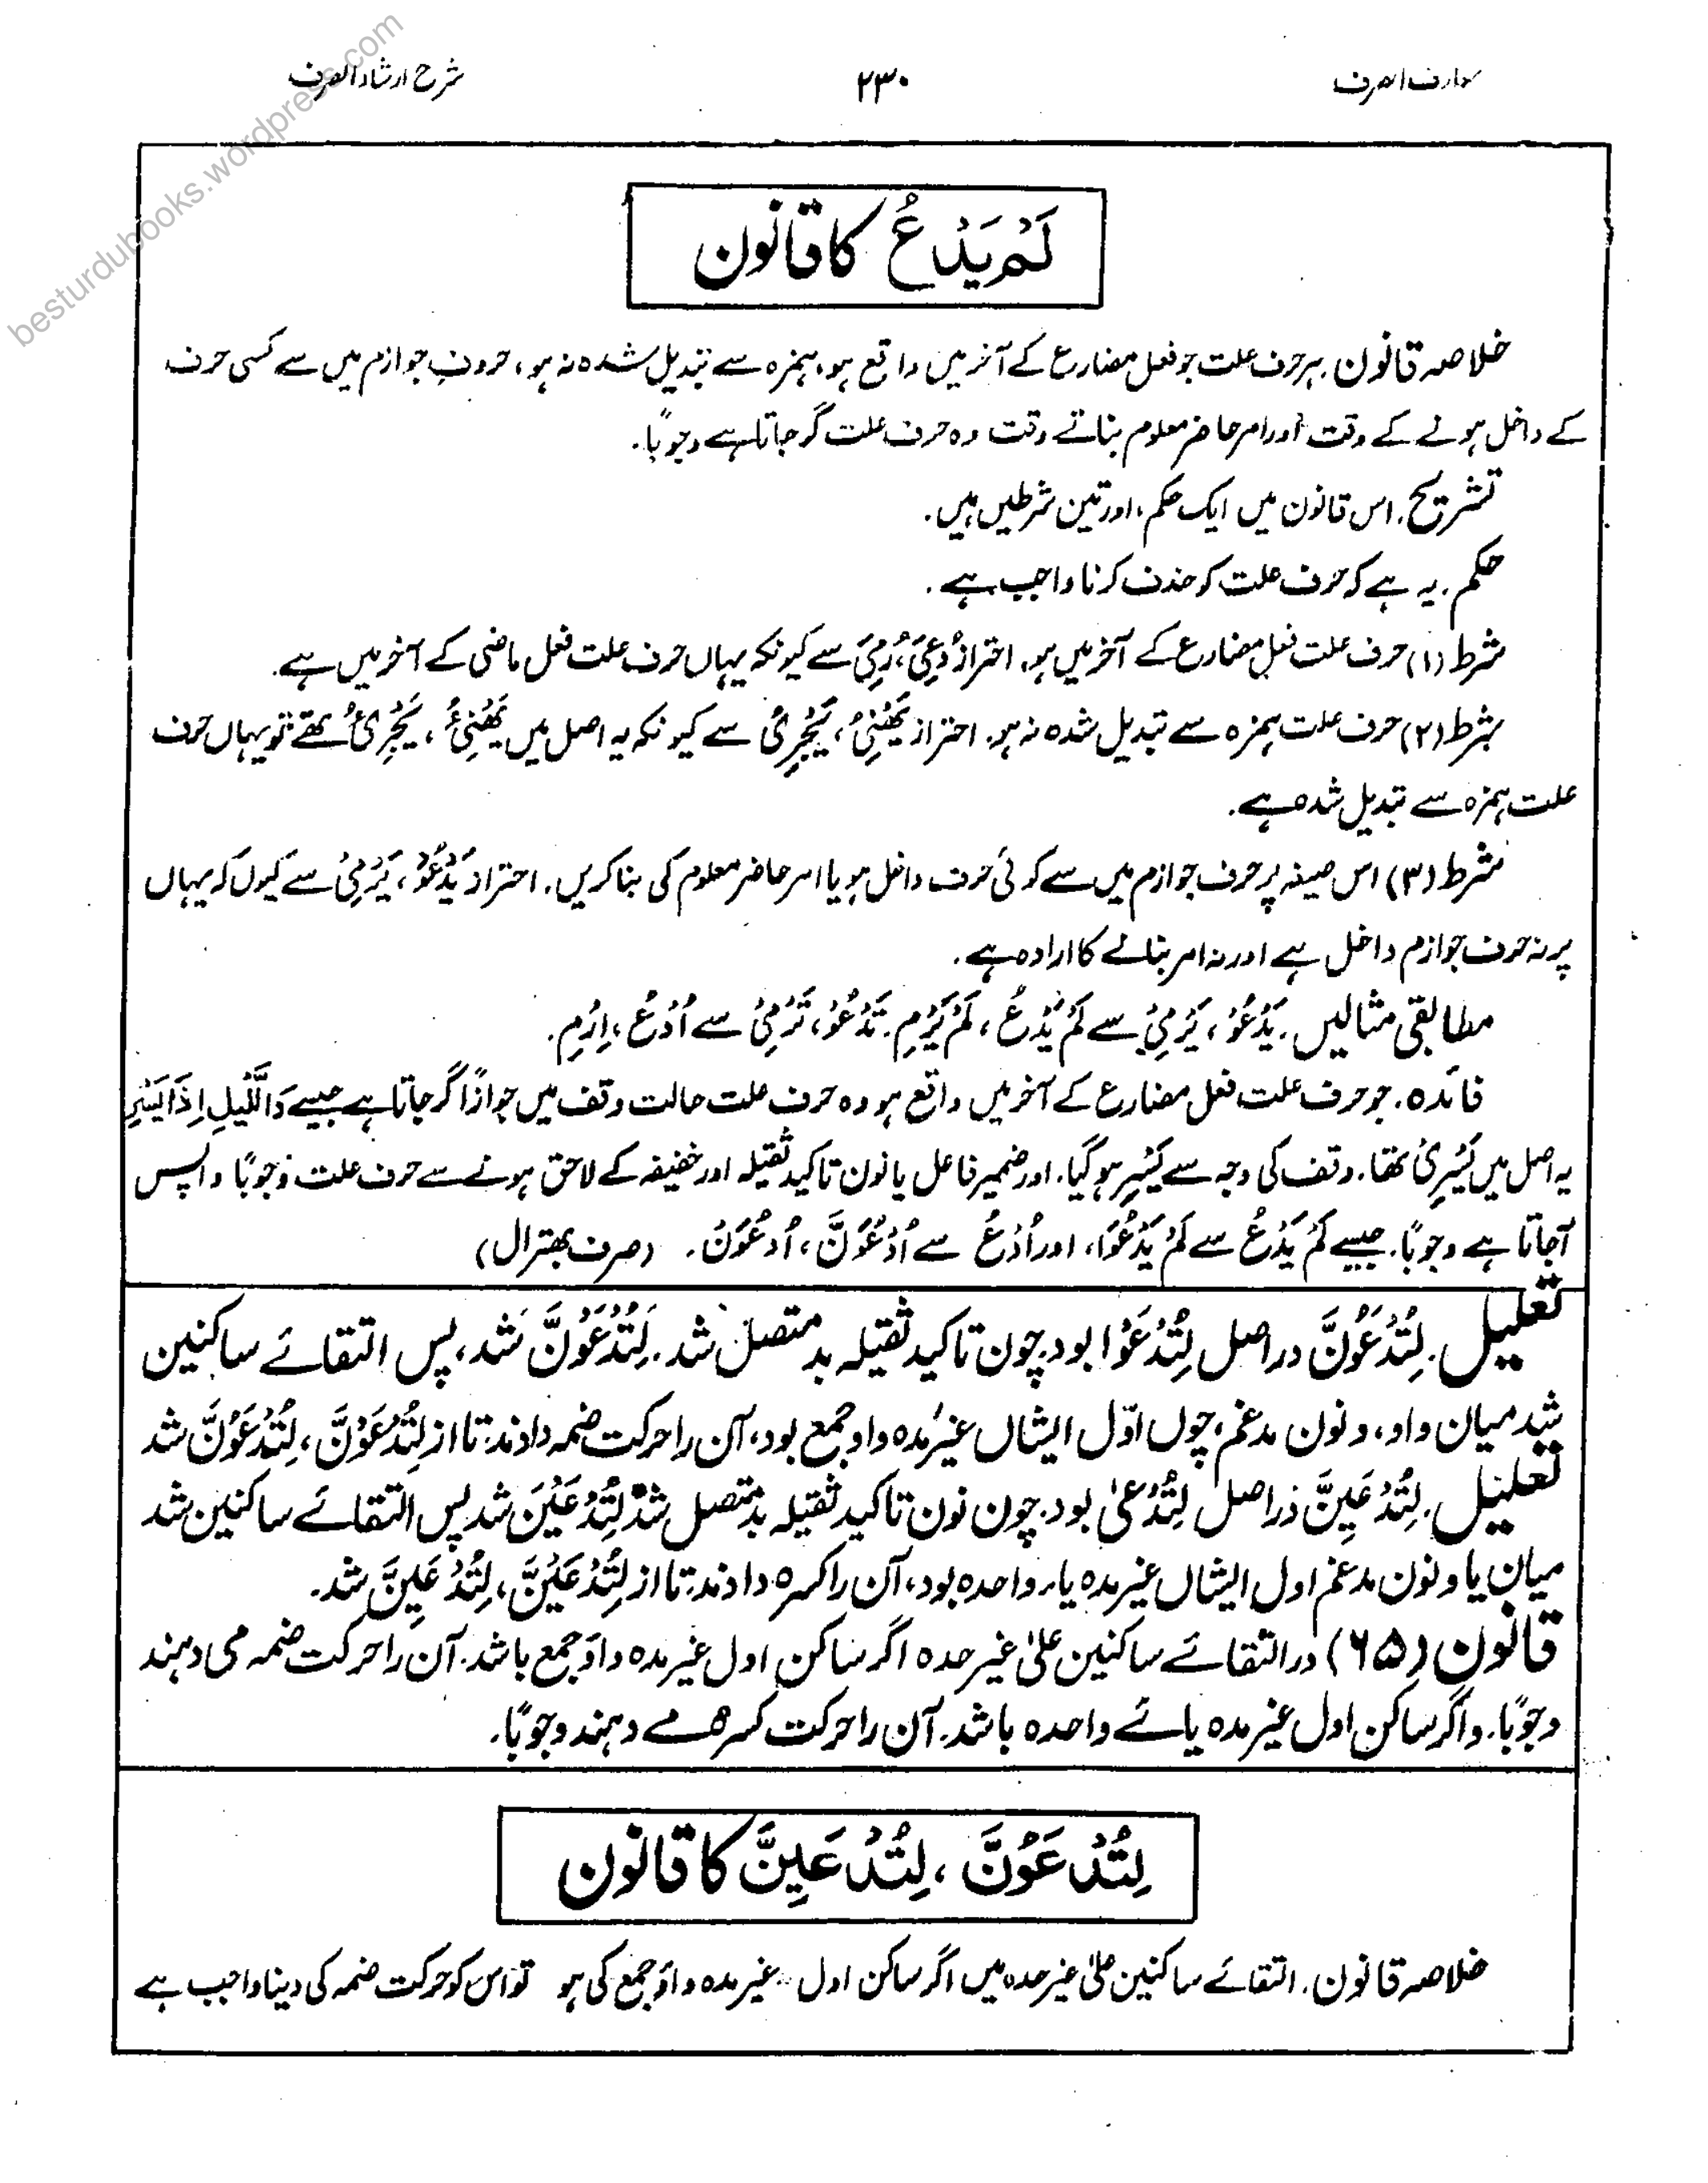 معارف الصرف ۲۳۰ شرح ارشاد الصرف
besturdubooks.wordpress.com
لَمْ يَدْعُ کا قانون
خلاصہ قانون. ہر حرف علت جو فعل مضارع کے آخر میں واقع ہو، ہمزہ سے تبدیل شدہ نہ ہو، حروفِ جوازم میں سے کسی حرف
کے داخل ہونے کے وقت اور امر حاضر معلوم بناتے وقت وہ حرف علت گر جاتا ہے وجوبًا.
تشریح. اس قانون میں ایک حکم، اور تین شرطیں ہیں.
حکم. یہ ہے کہ حرف علت کو حذف کرنا واجب ہے.
شرط (۱) حرف علت فعل مضارع کے آخر میں ہو. احتراز دُعِیَ، رُمِیَ سے کیونکہ یہاں حرف علت فعل ماضی کے آخر میں ہے.
شرط (۲) حرف علت ہمزہ سے تبدیل شدہ نہ ہو. احتراز یَھْنِیُ، یُجْرِیُ سے کیونکہ یہ اصل میں یَھْنِئُ، یُجْرِئُ تھے تو یہاں حرف
علت ہمزہ سے تبدیل شدہ ہے.
شرط (۳) اس صیغہ پر حرف جوازم میں سے کوئی حرف داخل ہو یا امر حاضر معلوم کی بنا کریں. احتراز یَدْعُوْ، یَرْمِیْ سے کیوں کہ یہاں
پر نہ حرف جوازم داخل ہے اور نہ امر بنانے کا ارادہ ہے.
مطابقی مثالیں. یَدْعُوْ، یَرْمِیْ سے لَمْ یَدْعُ، لَمْ یَرْمِ. تَدْعُوْ، تَرْمِیْ سے اُدْعُ، اِرْمِ.
فائدہ. جو حرف علت فعل مضارع کے آخر میں واقع ہو وہ حرف علت حالت وقف میں جوازًا گر جاتا ہے جیسے وَاللَّیْلِ اِذَا یَسْرِ
یہ اصل میں یَسْرِیْ تھا. وقف کی وجہ سے یَسْرِ ہو گیا. اور ضمیر فاعل یا نون تاکید ثقیلہ اور خفیفہ کے لاحق ہونے سے حرف علت وجوبًا واپس
آجاتا ہے وجوبًا. جیسے لَمْ یَدْعُ سے لَمْ یَدْعُوَا، اور اُدْعُ سے اُدْعُوَنَّ، اُدْعُوَنْ. (صرف بھترال)
تعلیل. لِتُدْعَوُنَّ دراصل لِتُدْعَوْا بود. چون تاکید ثقیلہ بد متصل شد. لِتُدْعَوْنَّ شد، پس التقائے ساکنین
شد میان واو، و نون مدغم، چوں اوّل ایشاں غیر مدہ واو جمع بود، آن را حرکت ضمہ دادند تا از لِتُدْعَوْنَّ، لِتُدْعَوُنَّ شد
تعلیل. لِتُدْعَیِنَّ دراصل لِتُدْعیٰ بود. چون نون تاکید ثقیلہ بد متصل شد لِتُدْعَیْنَّ شد پس التقائے ساکنین شد
میان یا و نون مدغم اول ایشاں غیر مدہ یاء واحدہ بود، آن را کسرہ دادند تا از لِتُدْعَیْنَّ، لِتُدْعَیِنَّ شد.
قانون (۶۵) در التقائے ساکنین علیٰ غیر حدہ اگر ساکن اول غیر مدہ واوِ جمع باشد. آن را حرکت ضمہ می دہند
وجوبًا. و اگر ساکن اول غیر مدہ یائے واحدہ باشد. آن را حرکت کسرہ مے دہند وجوبًا.
لِتُدْعَوُنَّ، لِتُدْعَیِنَّ کا قانون
خلاصہ قانون. التقائے ساکنین علیٰ غیر حدہ میں اگر ساکن اول غیر مدہ واو جمع کی ہو تو اس کو حرکت ضمہ کی دینا واجب ہے